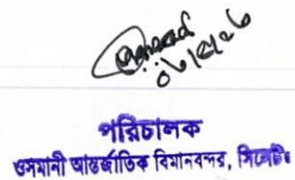 ০৬/৫/২৬
পরিচালক
ওসমানী আন্তর্জাতিক বিমানবন্দর, সিলেট।